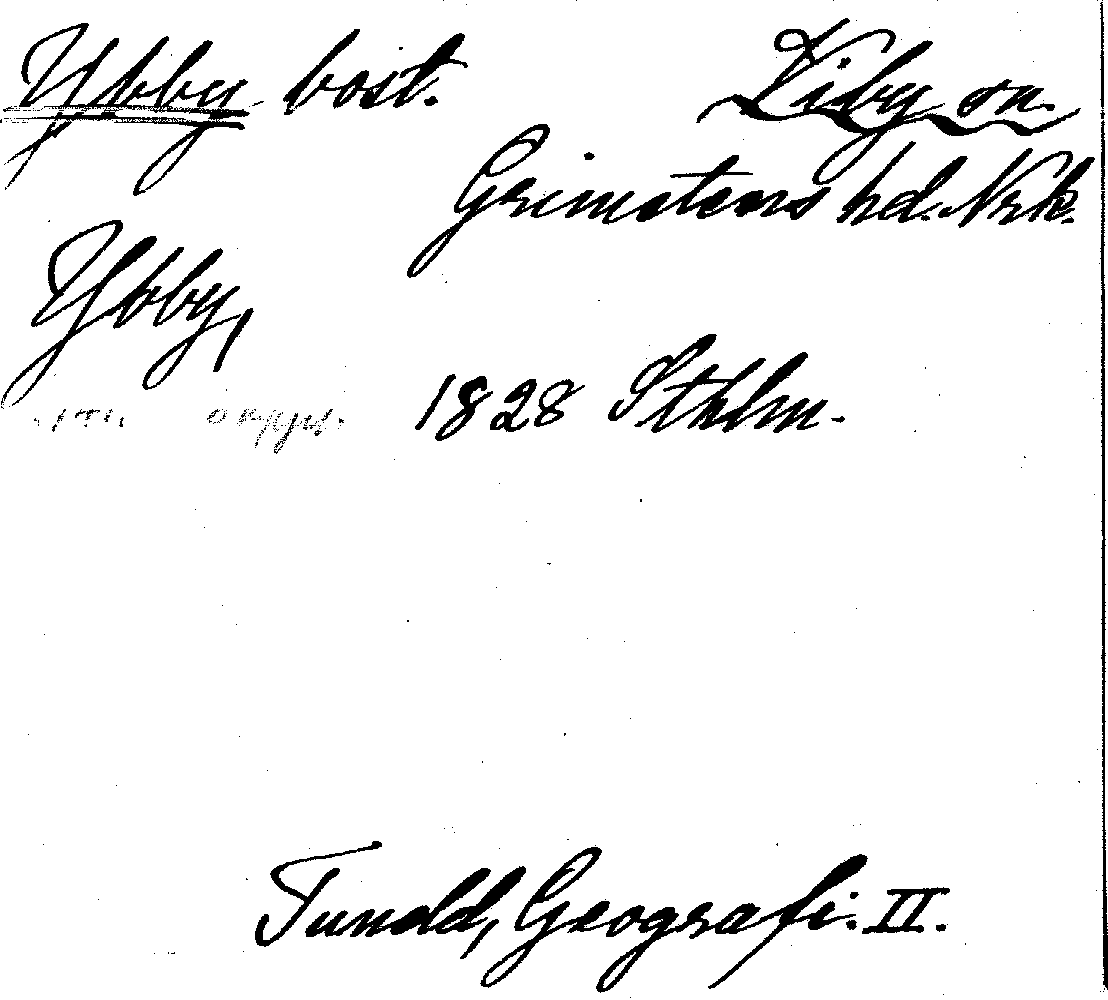 Ybby bost. Viby sn.
Grimstens hd. Nrk.
Ybby,
1828 Sthlm.
Tuneld, Geografi. II.